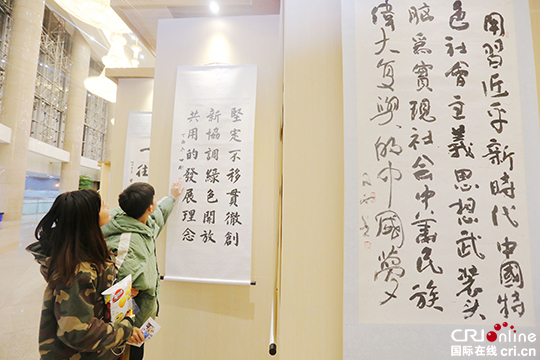 用習近平新時代中國特
色社會主義思想武裝头
腦爲實現社会中華民族
偉大复興的中國夢
堅定不移貫徹創
新協調綠色開放
共用的發展理念
CRIonline
国际在线 cri.cn